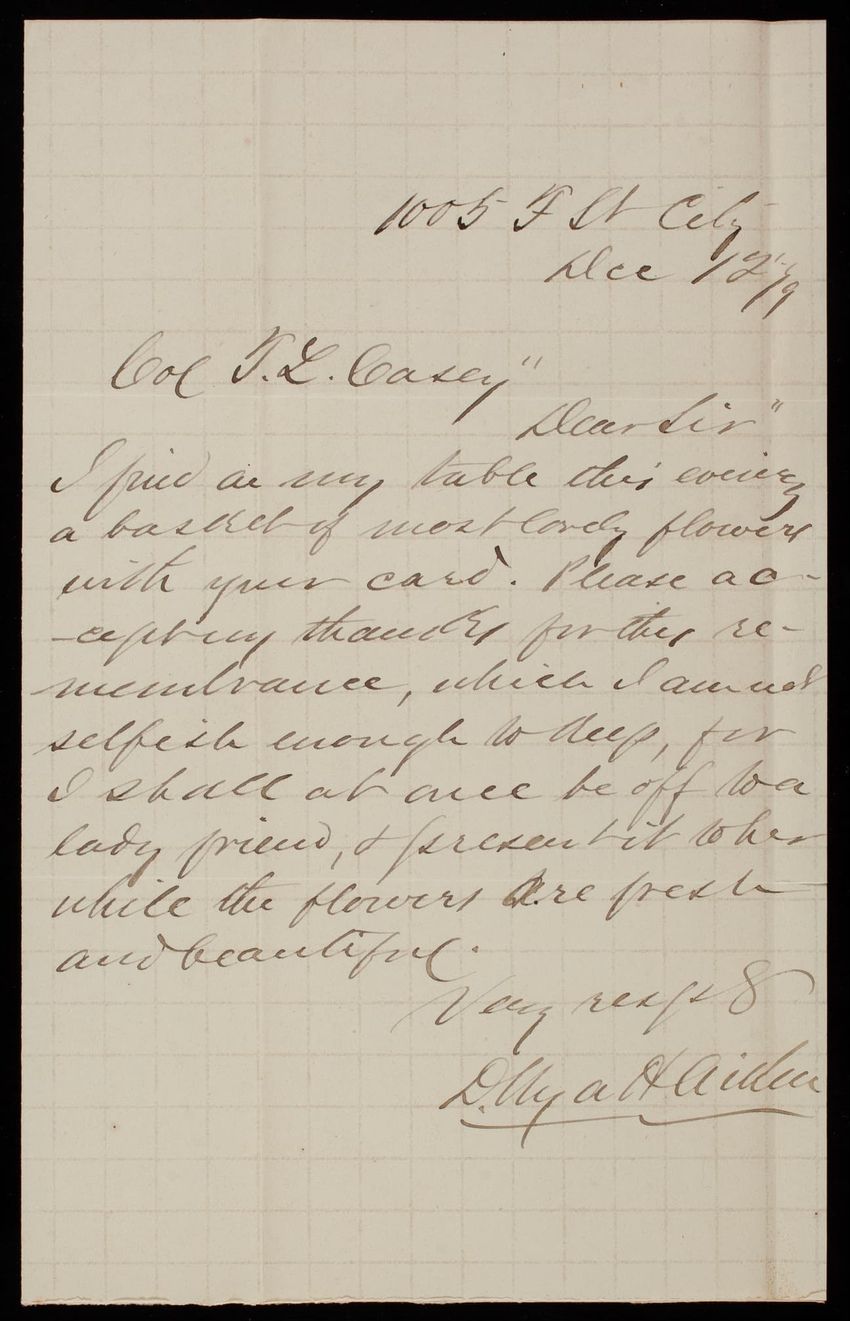 1005 F St City
Dec 12/79
Col T. L. Casey"
Dear Sir"
I find on my table this evening
a basket of most lovely flowers
with your card. Please ac-
-cept my thanks for this re-
-membrance, which I am not
selfish enough to keep, for
I shall at once be off to a
lady friend, & present it to her
while the flowers are fresh
and beautiful.
Very resp &
D. Wyatt Aiken